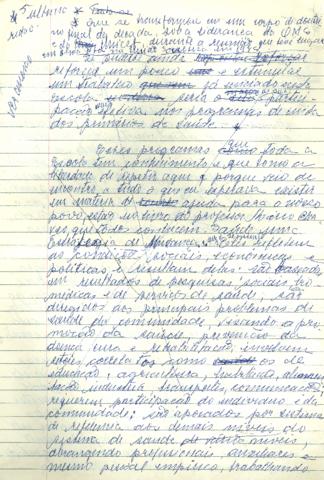 que se transformou em um corpo de doutri
no final da década, sob a liderança da OMS
e do Unicef, durante a reunião que teve lugar
reforça um pouco e estimular
um trabalho que já iniciado nesta
Escola seria o partici-
pação efetiva nos programas de cuida
dos primários de saúde.
Esses programas que toda a
Escola tem conhecimento e que tomo a
liberdade de repetir aqui porque veio de
encontro a tudo o que eu esperava existir
em matéria de ajuda para o nosso
povo, estão na livro do professor Mário Cha
ves que todos conhecem. Saúde uma
Estratégia de Mudança. Estes refletem
as condições sociais, econômicas e
políticas, e resultam delas: são baseados
em resultados de pesquisas sociais, bio
médicas e de serviços de saúde, são
dirigidos aos principais problemas de
saúde da comunidade, visando a pro
moção da saúde, prevenção da
doença, cura, reabilitação, envolvem
setores correlatos como os da
educação, agricultura, alimen
tação, indústria, transportes, comunicações;
requerem participação do indivíduo e da
comunidade; são apoiados por sistema
de referência aos demais níveis do
sistema de saúde
abrangendo profissionais, auxiliares e
mesmo pessoal empírico, trabalhando